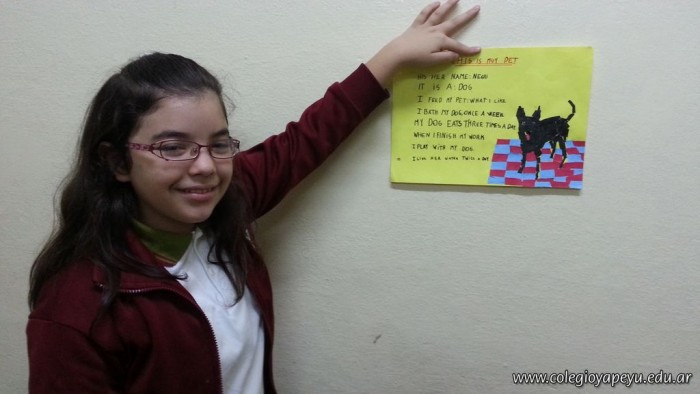 THIS IS MY PET
HER NAME: NEWU
IT IS A: DOG
I FEED MY PET: WHAT I LIKE
I BATH MY DOG ONCE A WEEK
MY DOG EATS THREE TIMES A DAY
WHEN I FINISH MY WORK
I PLAY WITH MY DOG
I LIKE HER TWICE A DAY
www.colegioyapeyu.edu.ar